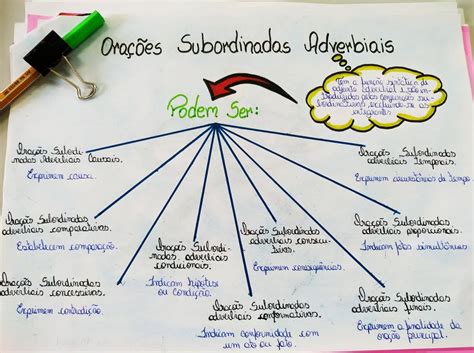 Orações Subordinadas Adverbiais
Tem a função sintática de
adjunto adverbial e são in-
troduzidas pelas conjunções su-
bordinativas, excluindo-se as
integrantes.
Podem Ser:
Orações Subordi-
nadas Adverbiais Causais.
Exprimem causa.
Orações Subordinadas
adverbiais Temporais.
Exprimem circunstâncias de tempo
Orações Subordinadas
adverbiais comparativas.
Estabelecem comparação.
Orações Subordi-
nadas, adverbiais
condicionais.
Indicam hipótese
ou condição.
Orações Subordinadas
adverbiais consecu-
tivas.
Exprimem consequências.
Orações Subordinadas
adverbiais proporcionais.
Indicam fatos simultâneos
Orações Subordinadas
adverbiais concessivas.
Exprimem contradição.
Orações Subordinadas
adverbiais conformativas.
Indicam conformidade com
um ato ou fato.
Orações Subordinadas
adverbiais finais.
Exprimem a finalidade da
oração principal.